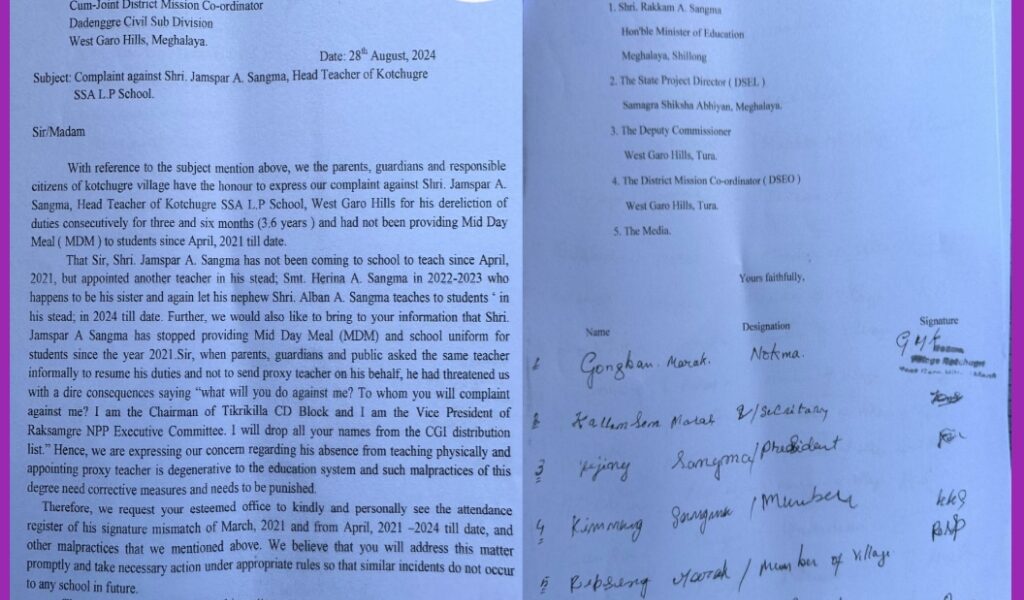 Cum-Joint District Mission Co-ordinator
Dadenggre Civil Sub Division
West Garo Hills, Meghalaya.
Date: 28th August, 2024
Subject: Complaint against Shri. Jamspar A. Sangma, Head Teacher of Kotchugre
SSA L.P School.
Sir/Madam
With reference to the subject mention above, we the parents, guardians and responsible
citizens of kotchugre village have the honour to express our complaint against Shri. Jamspar A.
Sangma, Head Teacher of Kotchugre SSA L.P School, West Garo Hills for his dereliction of
duties consecutively for three and six months (3.6 years ) and had not been providing Mid Day
Meal ( MDM ) to students since April, 2021 till date.
That Sir, Shri. Jamspar A. Sangma has not been coming to school to teach since April,
2021, but appointed another teacher in his stead; Smt. Herina A. Sangma in 2022-2023 who
happens to be his sister and again let his nephew Shri. Alban A. Sangma teaches to students ‘ in
his stead; in 2024 till date. Further, we would also like to bring to your information that Shri.
Jamspar A Sangma has stopped providing Mid Day Meal (MDM) and school uniform for
students since the year 2021.Sir, when parents, guardians and public asked the same teacher
informally to resume his duties and not to send proxy teacher on his behalf, he had threatened us
with a dire consequences saying “what will you do against me? To whom you will complaint
against me? I am the Chairman of Tikrikilla CD Block and I am the Vice President of
Raksamgre NPP Executive Committee. I will drop all your names from the CGI distribution
list.” Hence, we are expressing our concern regarding his absence from teaching physically and
appointing proxy teacher is degenerative to the education system and such malpractices of this
degree need corrective measures and needs to be punished.
Therefore, we request your esteemed office to kindly and personally see the attendance
register of his signature mismatch of March, 2021 and from April, 2021 –2024 till date, and
other malpractices that we mentioned above. We believe that you will address this matter
promptly and take necessary action under appropriate rules so that similar incidents do not occur
to any school in future.
1. Shri. Rakkam A. Sangma
Hon'ble Minister of Education
Meghalaya, Shillong
2. The State Project Director ( DSEL )
Samagra Shiksha Abhiyan, Meghalaya.
3. The Deputy Commissioner
West Garo Hills, Tura.
4. The District Mission Co-ordinator ( DSEO )
West Garo Hills, Tura.
5. The Media.
Yours faithfully,
Name Designation Signature
1 Gongban. Marak. Nokma.
2 Marak
3 Sangma/President
4 Sangma / Member
5 Marak / Member of Village